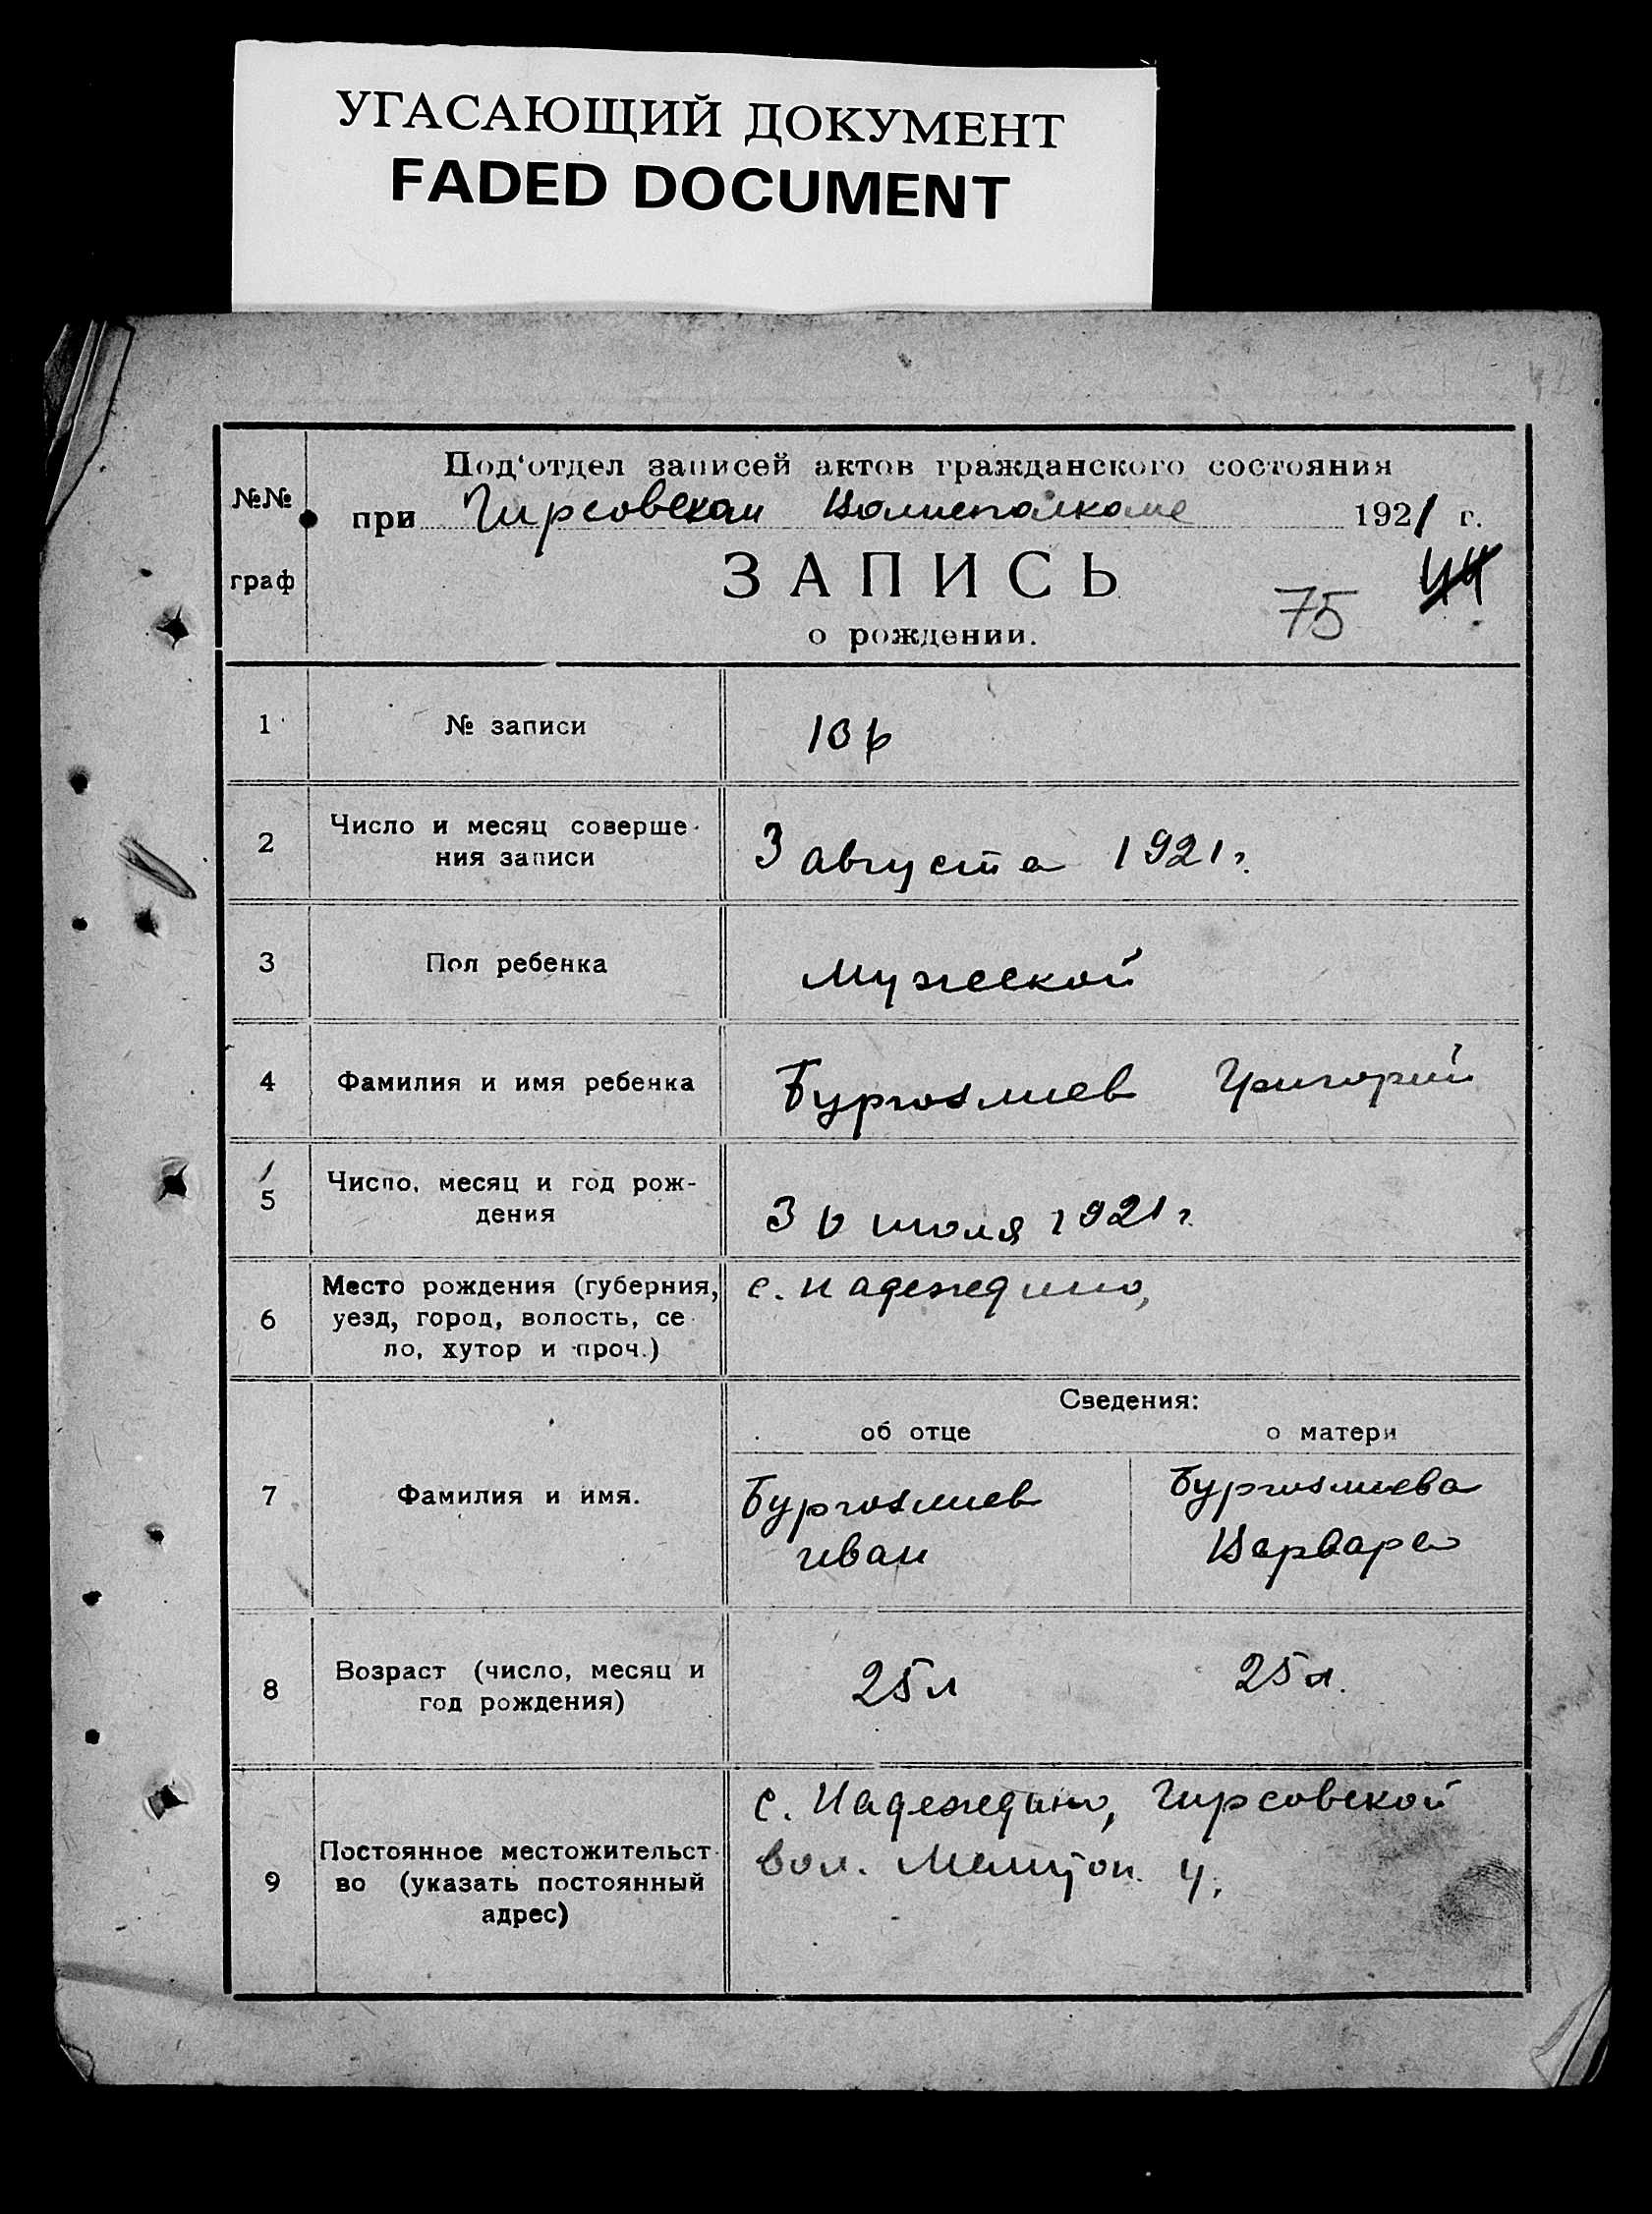 УГАСАЮЩИЙ ДОКУМЕНТ
FADED DOCUMENT
№№
граф
Под'отдел записей актов гражданского состояния
при Гирсовском Волисполкоме 1921 г.
ЗАПИСЬ
о рождении.
75
44
1
№ записи
2
Число и месяц соверше-
ния записи
3 августа 1921 г.
3
Пол ребенка
Мужеской
4
Фамилия и имя ребенка
Бургозлиев Григорий
5
Число, месяц и год рож-
дения
30 июля 1921 г
6
Место рождения (губерния,
уезд, город, волость, се-
ло, хутор и проч.)
с. Надеждино,
Сведения:
об отце
о матери
7
Фамилия и имя.
Бургозлиев
Иван
Бургозлиева
Варвара
8
Возраст (число, месяц и
год рождения)
25 л
25 л.
9
Постоянное местожительст-
во (указать постоянный
адрес)
с. Надеждино, Гирсовской
вол. Мелитоп. у.